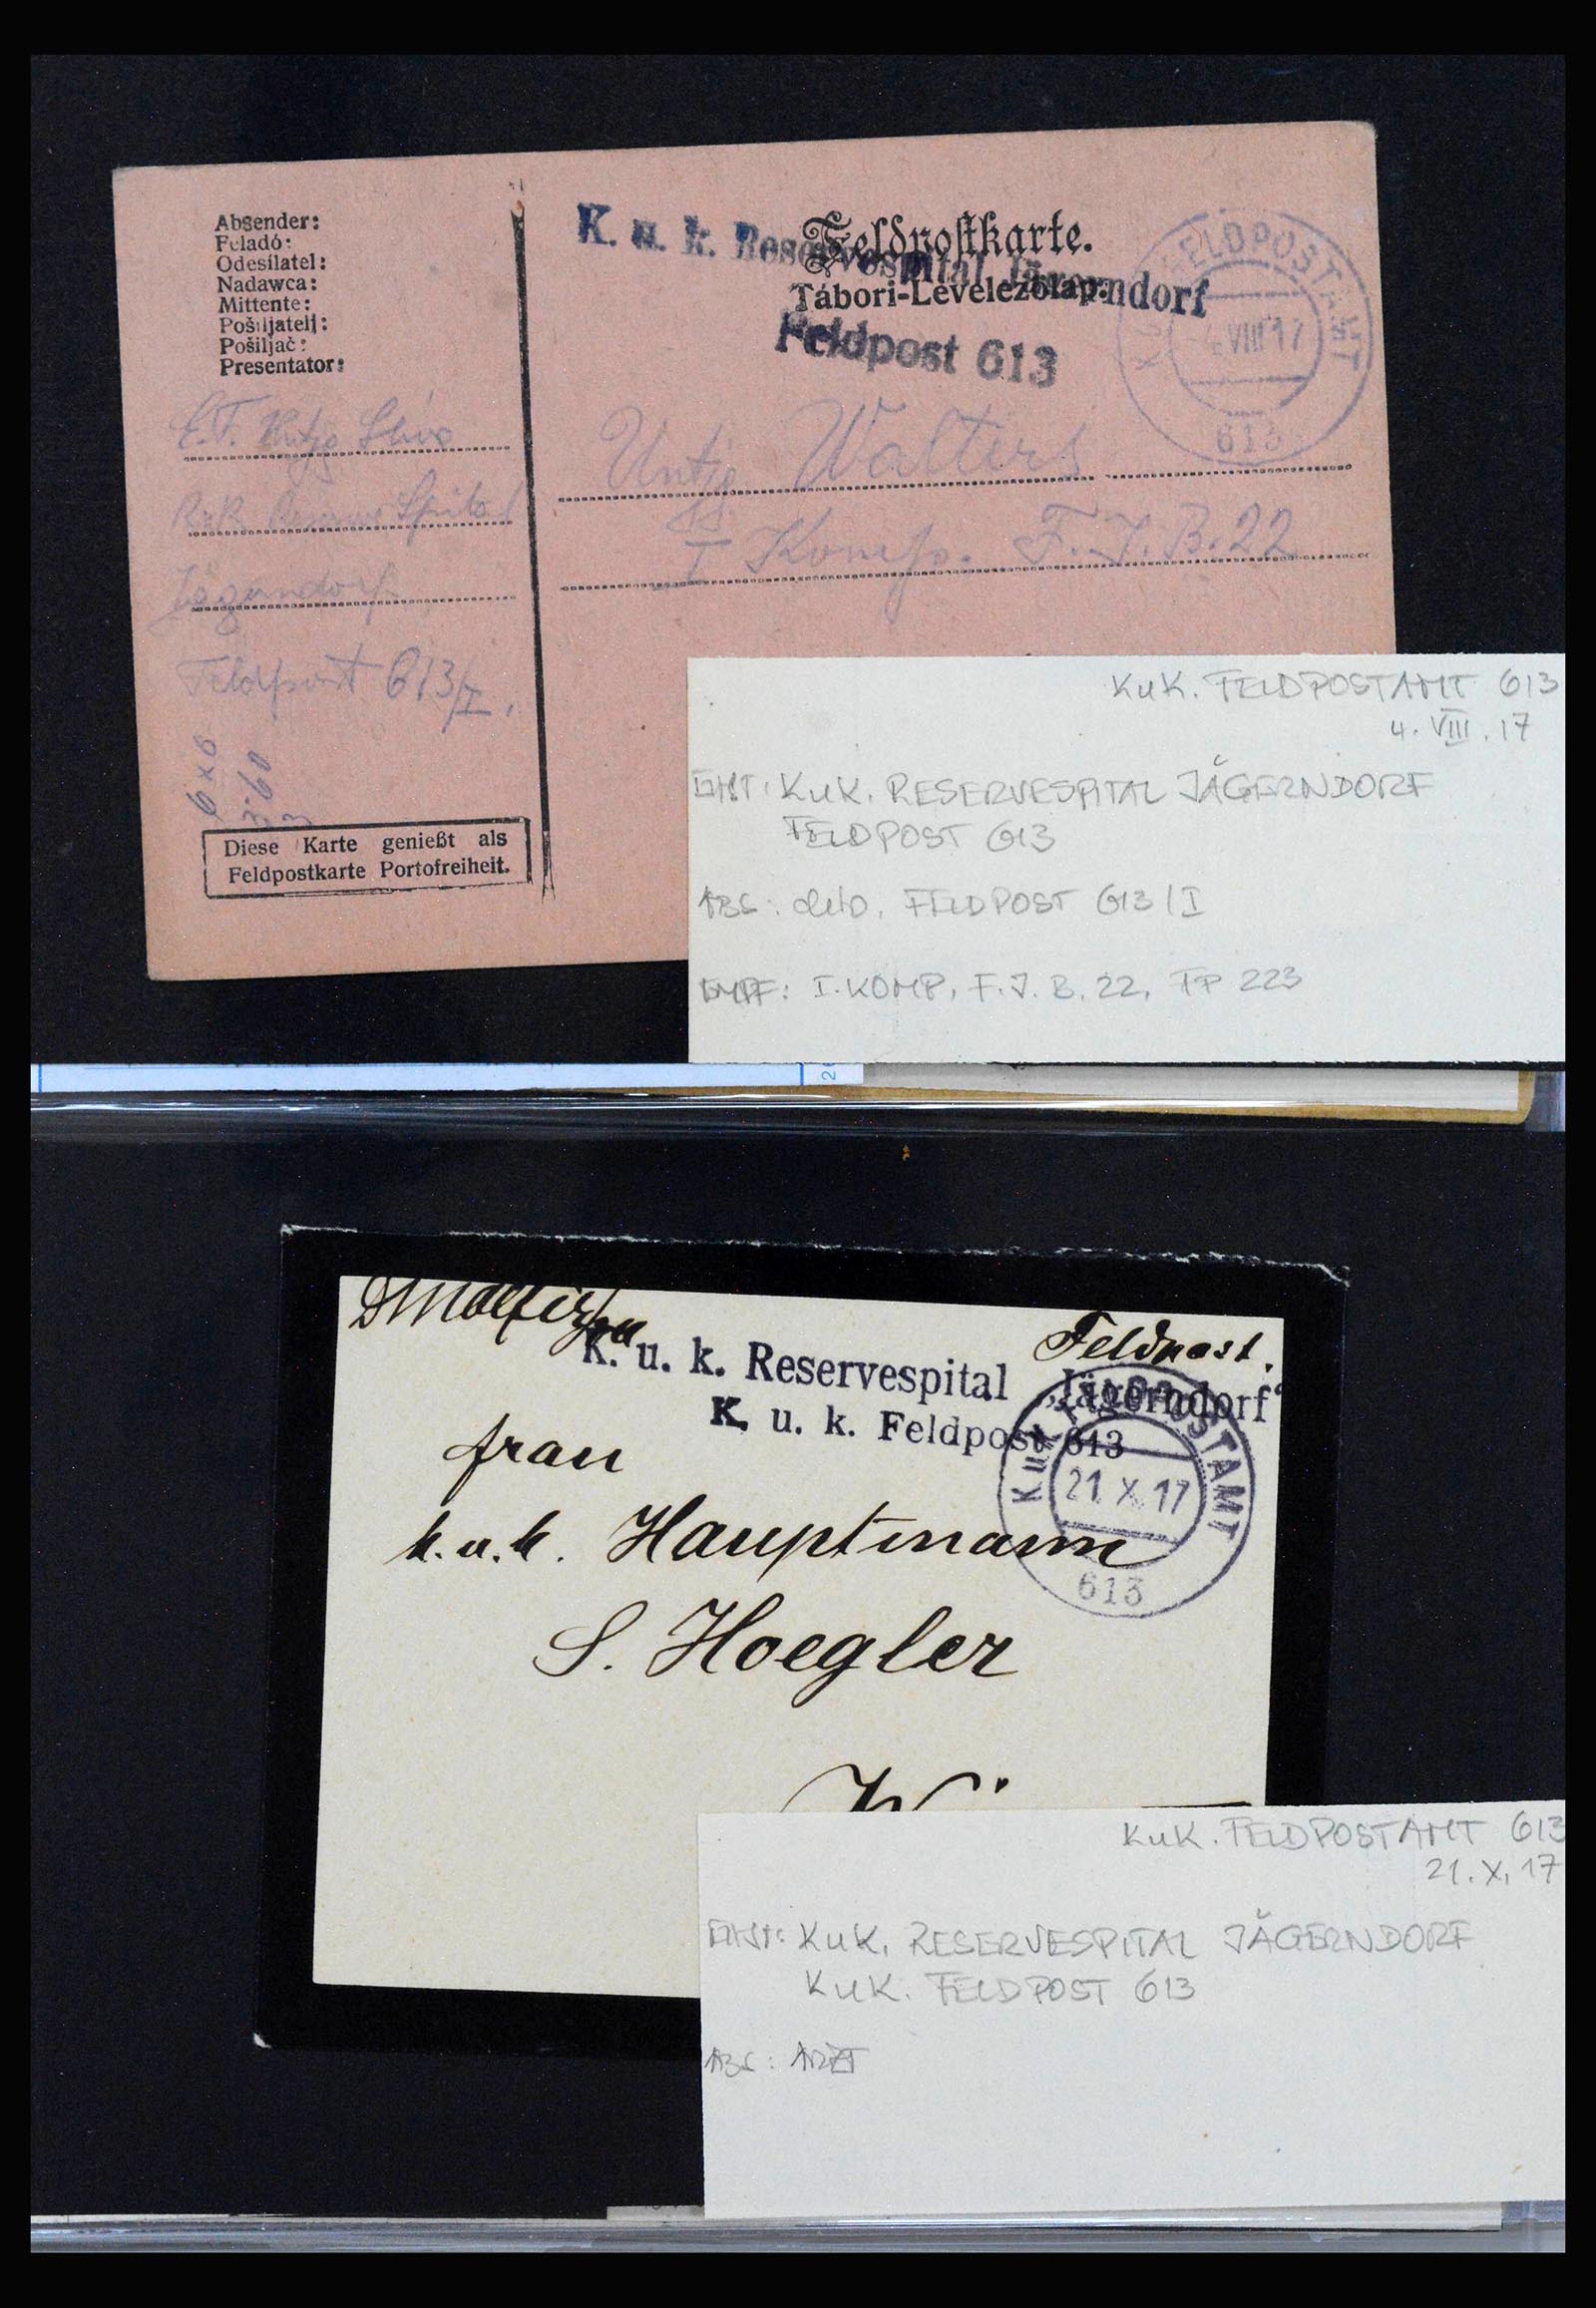 Absender:
Feladó:
Odesílatel:
Nadawca:
Mittente:
Pošiljatelj:
Pošiljač:
Presentator:
Feldpostkarte.
Tábori-Levelezőlap.
K. u. k. Reservespital Jägerndorf
Feldpost 613
K.u.K. FELDPOSTAMT
VIII 17
613
E.F.
Reserve Spital
Jägerndorf
Feldpost 613/I.
6x6
3·60
Walters
I Komp. F.J.B. 22
Diese Karte genießt als
Feldpostkarte Portofreiheit.
KuK. FELDPOSTAMT 613
4. VIII. 17
KuK. RESERVESPITAL JÄGERNDORF
FELDPOST 613
ABS: deto. FELDPOST 613/I
EMPF: I. KOMP, F.J.B. 22, FP 223
Feldpost.
K. u. k. Reservespital „Jägerndorf“
K. u. k. Feldpost 613
K.u.K. FELDPOSTAMT
21 X 17
613
Frau
k.u.k. Hauptmann
S. Hoegler
KuK. FELDPOSTAMT 613
21. X. 17
KuK. RESERVESPITAL JÄGERNDORF
KuK. FELDPOST 613
ABS: ARZT